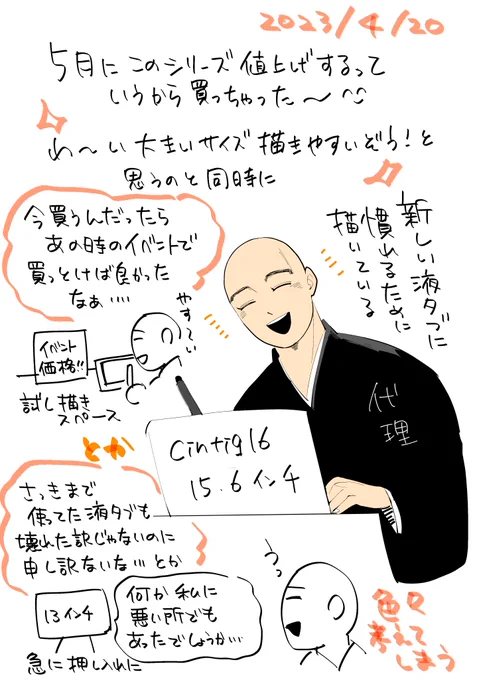 2023/4/20
5月にこのシリーズ値上げするって
いうから買っちゃった〜
わ〜い大きいサイズ描きやすいぞう!と
思うのと同時に
新しい液タブに
慣れるために
描いている
今買うんだったら
あの時のイベントで
買っとけば良かった
なぁ‥‥
やす〜い
イベント
価格!!
試し描き
スペース
代理
cintiq16
15.6インチ
とか
さっきまで
使ってた液タブも
壊れた訳じゃないのに
申し訳ないな…とか
13インチ
急に押し入れに
何か私に
悪い所でも
あったでしょうか…
うっ
色々
考えて
しまう